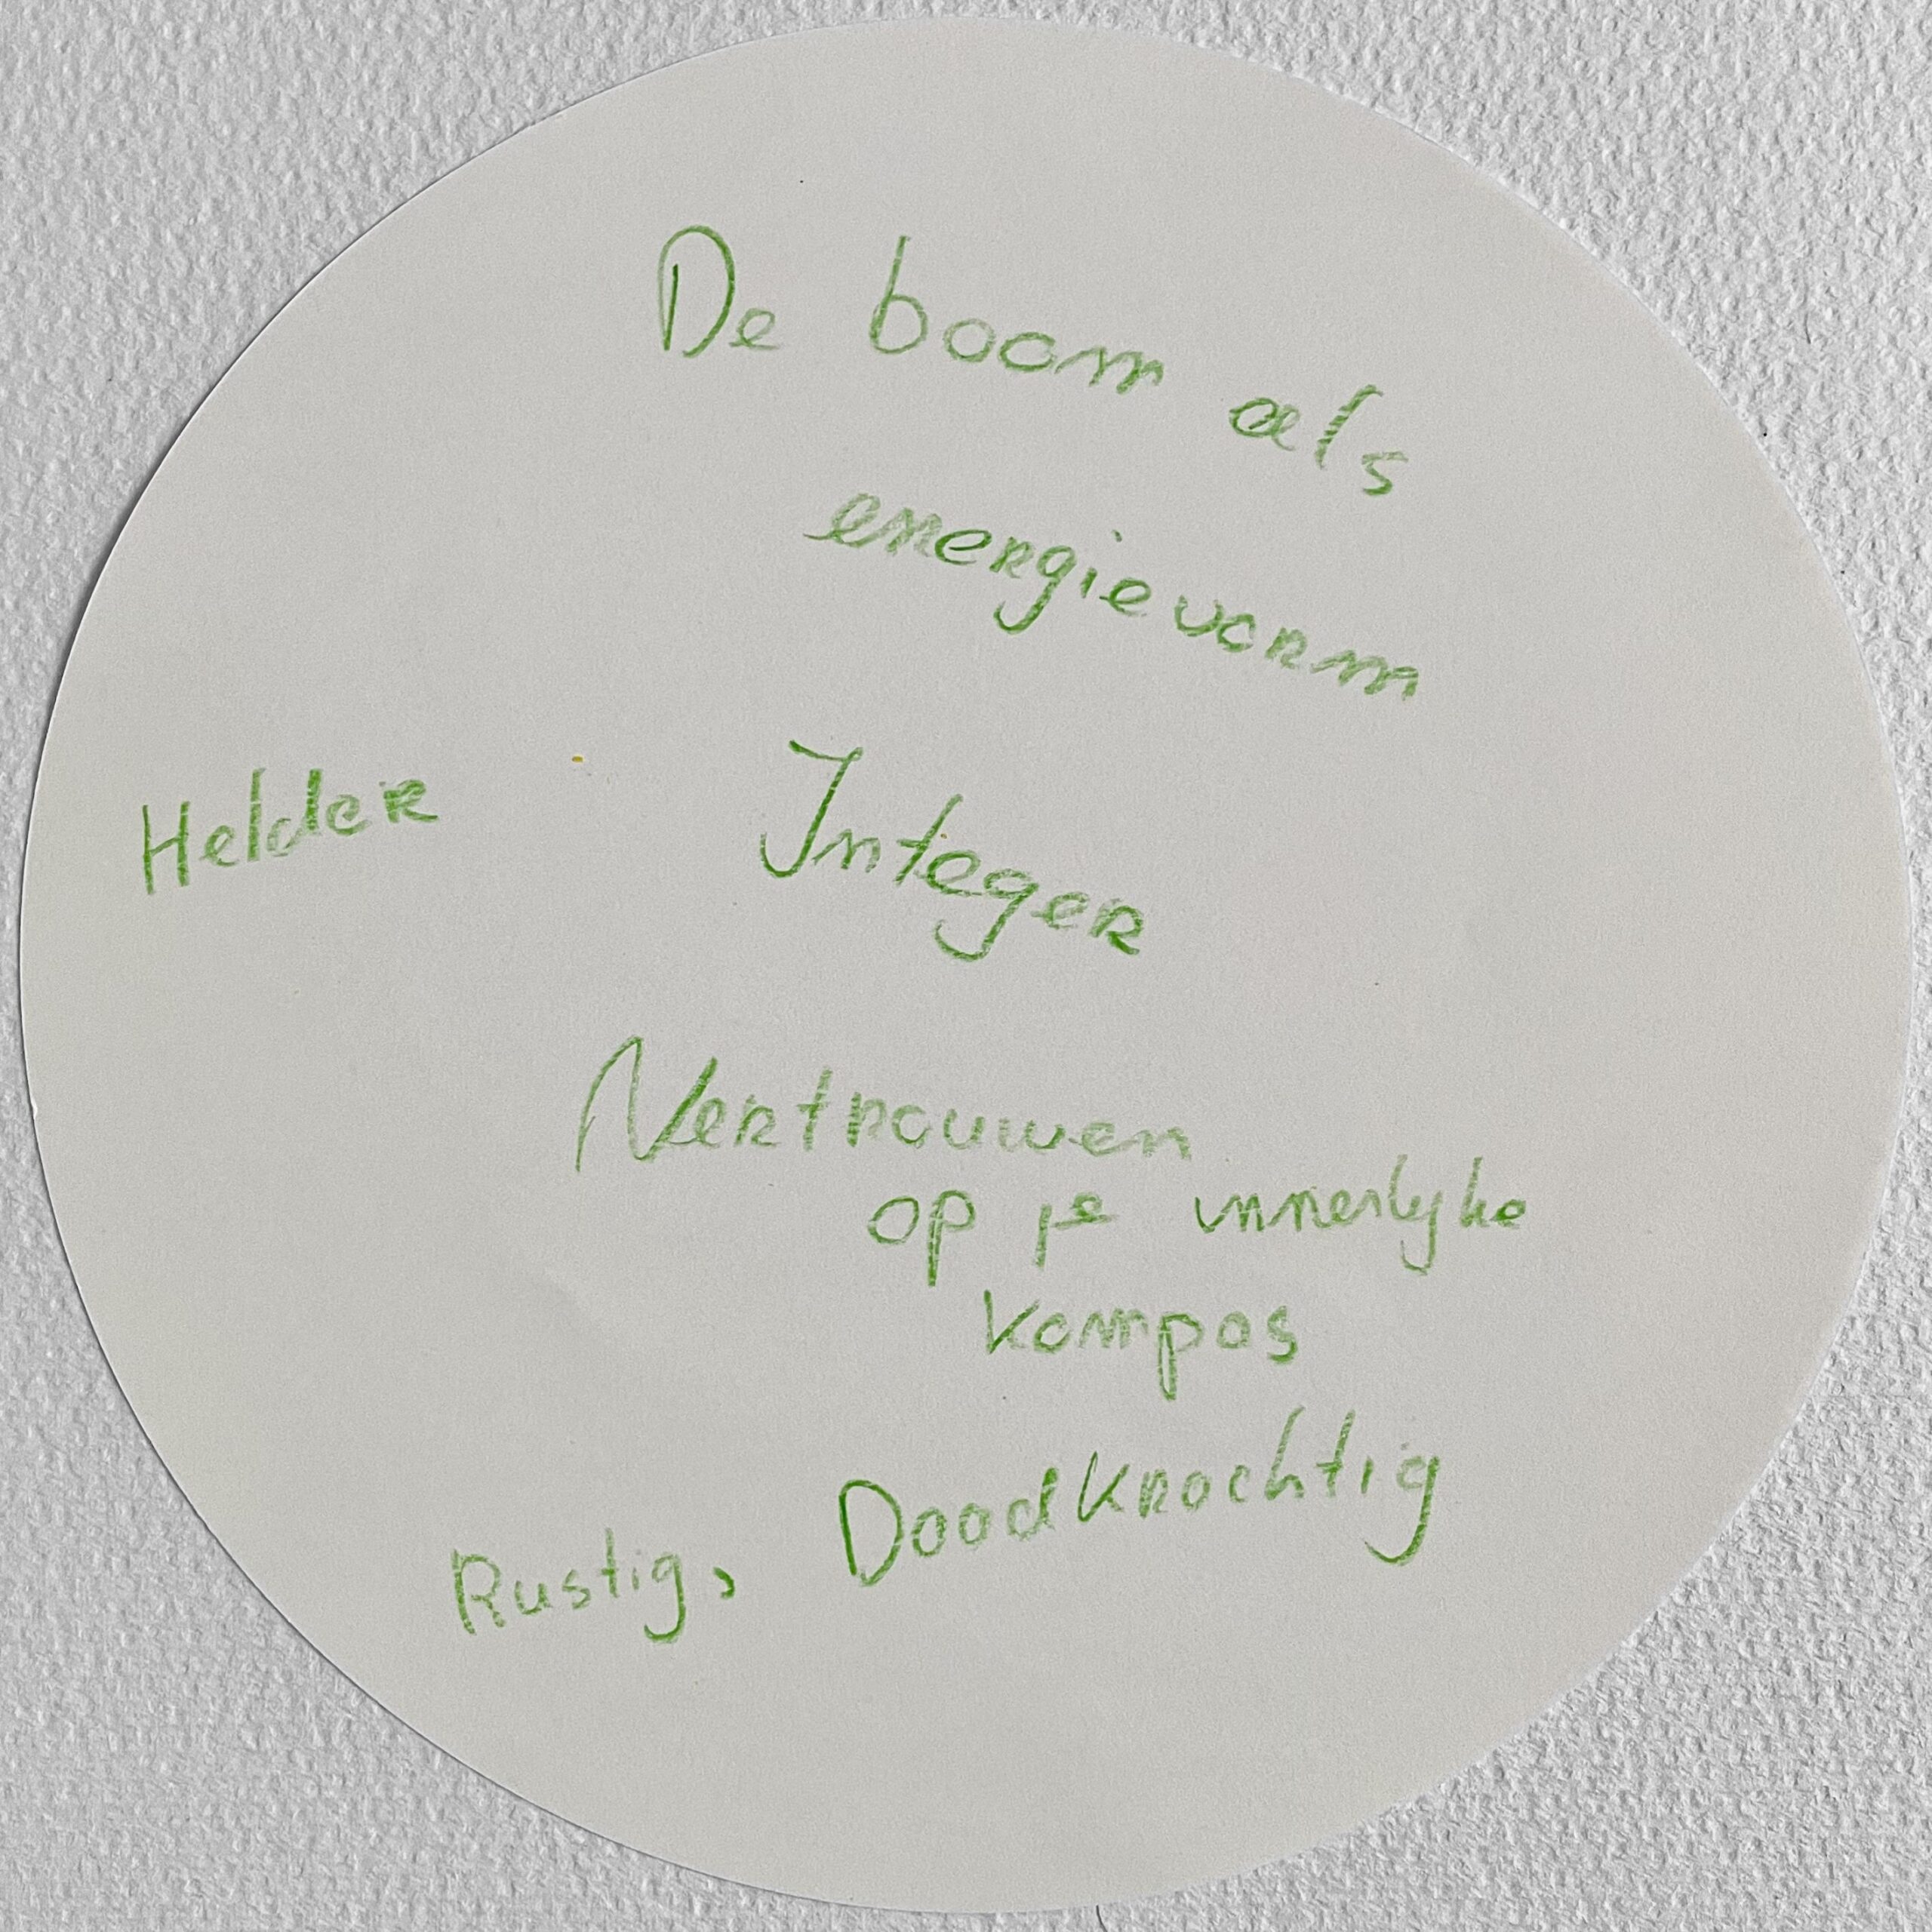 De boom als
energievorm
Helder
Integer
Vertrouwen
op je innerlijke
kompas
Rustig, Doodkrachtig